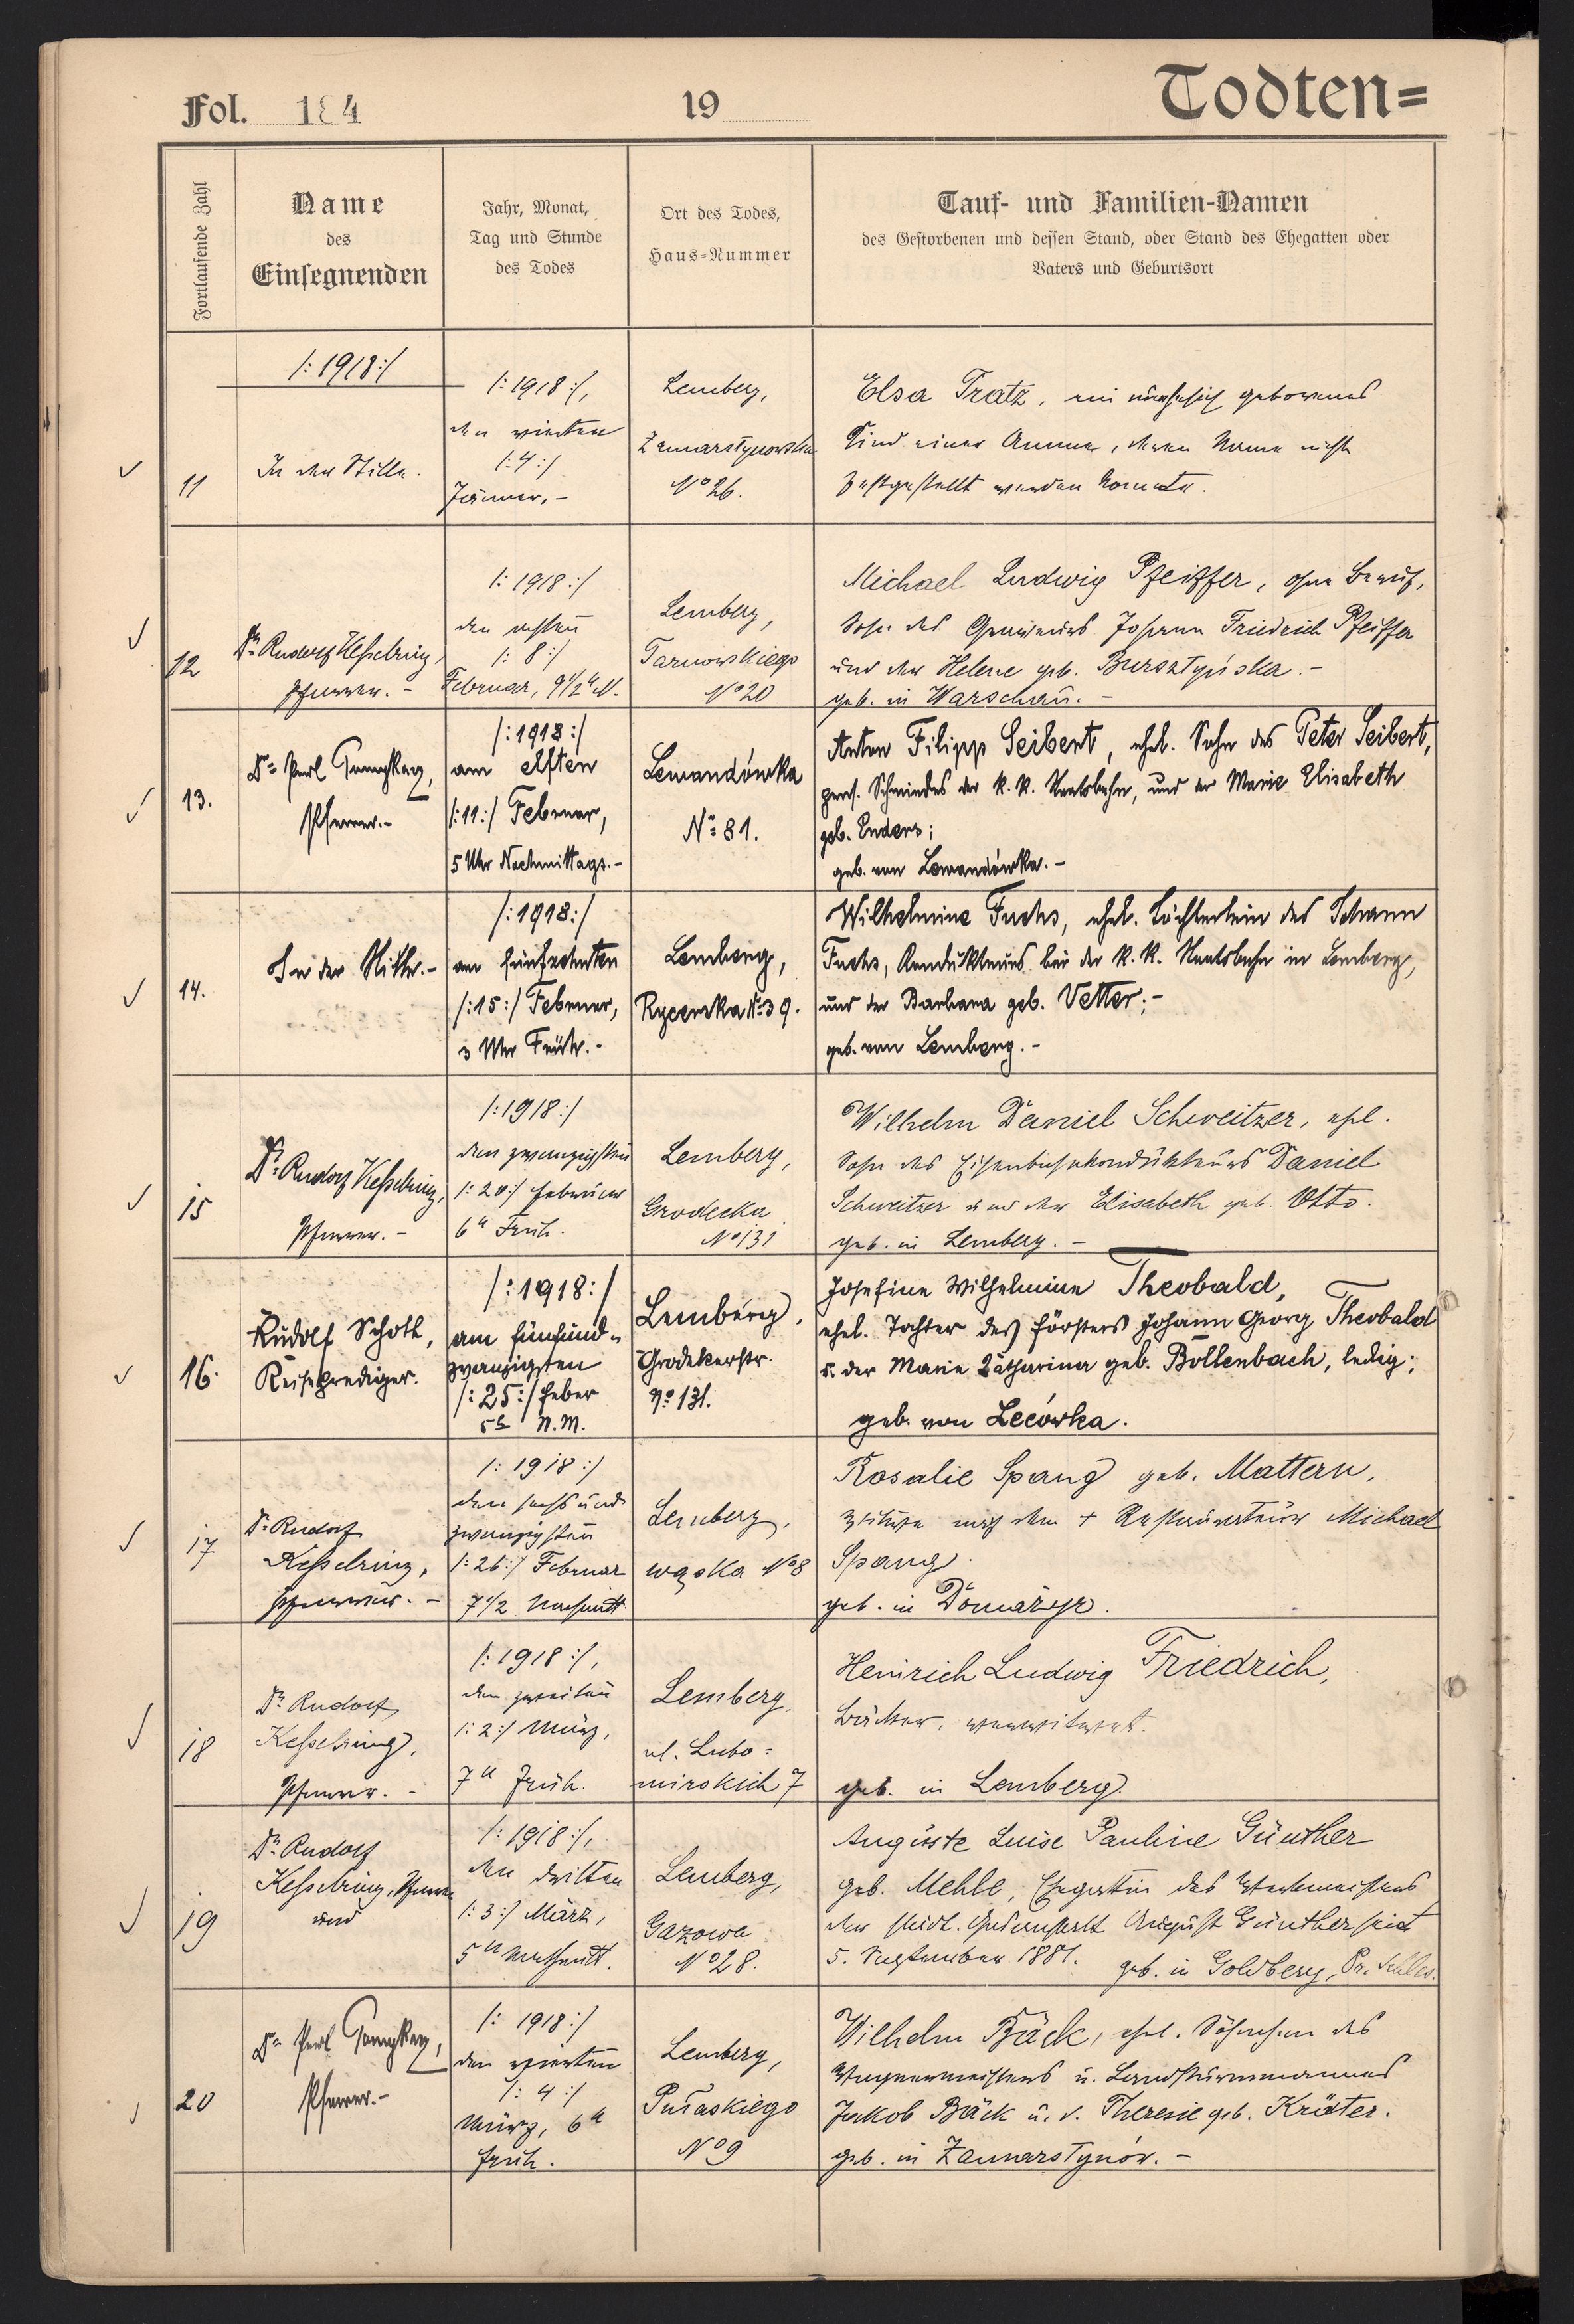 Fol. 184
19
Todten=
Fortlaufende Zahl
Name
des
Einsegnenden
Jahr, Monat,
Tag und Stunde
des Todes
Ort des Todes,
Haus-Nummer
Tauf- und Familien-Namen
des Gestorbenen und dessen Stand, oder Stand des Ehegatten oder
Vaters und Geburtsort
/: 1918 :/
11
In der Stille.
/: 1918 :/,
den vierten
/: 4 :/
Jänner. -
Lemberg,
Zamarstynowska
No 26.
Elsa Tratz, ein unehelich geborenes
Kind einer Amme, deren Name nicht
festgestellt werden konnte.
12
Dr. Rudolf Kesselring,
Pfarrer. -
/: 1918 :/
den achten
/: 8 :/
Februar, 9 1/2 h N.
Lemberg,
Tarnowskiego
No 20
Michael Ludwig Pfeiffer, ohne Beruf,
Sohn des Johann Friedrich Pfeiffer
und der Helene geb. Bursztyńska. -
geb. in Warschau. -
13.
Dr. Paul
Pfarrer. -
/: 1918 :/
am elften
/: 11 :/ Februar,
5 Uhr Nachmittags. -
Lewandówka
No 81.
Anton Filipp Seibert, ehel. Sohn des Peter Seibert,
pens. Schmiedes der k. k. Staatsbahn, und der Marie Elisabeth
geb. Enders;
geb. von Lewandówka. -
14.
In der Stille. -
/: 1918 :/
am fünfzehnten
/: 15 :/ Februar,
3 Uhr Früh. -
Lemberg,
Rycerska No 39.
Wilhelmine Fuchs, ehel. Töchterlein des Johann
Fuchs, Kondukteurs bei der k. k. Staatsbahn in Lemberg,
und der Barbara geb. Vetter; -
geb. von Lemberg. -
15
Dr. Rudolf Kesselring,
Pfarrer. -
/: 1918 :/
den zwanzigsten
/: 20 :/ Februar
6 h Früh.
Lemberg,
Grodecka
No 131
Wilhelm Daniel Schweitzer, ehl.
Sohn des Eisenbahnkondukteurs Daniel
Schweitzer und der Elisabeth geb. Otto.
geb. in Lemberg. -
16.
Rudolf Schoth,
Reiseprediger.
/: 1918 :/
am fünfund-
zwanzigsten
/: 25 :/ Feber
5 h N.M.
Lemberg,
Grodekerstr.
No 131.
Josefine Wilhelmine Theobald,
ehel. Tochter des Försters Johann Georg Theobald
u. der Marie Katharina geb. Bollenbach, ledig;
geb. von Lecówka.
17
Dr. Rudolf
Kesselring,
Pfarrer. -
/: 1918 :/
den sechsund
zwanzigsten
/: 26 :/ Februar
7 1/2 Nachmitt.
Lemberg,
wąska No 8
Rosalie Spang geb. Mattern,
Witwe nach dem + Restaurateur Michael
Spang.
geb. in Domażyr.
18
Dr. Rudolf
Kesselring,
Pfarrer. -
/: 1918 :/,
den zweiten
/: 2 :/ März,
7 h Früh.
Lemberg,
ul. Lubo=
mirskich 7
Heinrich Ludwig Friedrich,
Bäcker, verwitwet.
geb. in Lemberg.
19
Dr. Rudolf
Kesselring, Pfarrer
und
/: 1918 :/,
den dritten
/: 3 :/ März,
5 h Nachmitt.
Lemberg,
Gazowa
No 28.
Auguste Luise Pauline Günther
geb. Mehle, Ehegattin des Werkmeisters
der städt. Gasanstalt August Günther seit
5. September 1881. geb. in Goldberg, Pr. Schles.
20
Dr. Paul
Pfarrer. -
/: 1918 :/
den vierten
/: 4 :/
März, 6 h
früh.
Lemberg,
Pułaskiego
No 9
Wilhelm Bäck, ehel. Söhnchen des
Wagnermeisters u. Landsturmmannes
Jakob Bäck u. d. Theresie geb. Kräter.
geb. in Zamarstynów. -